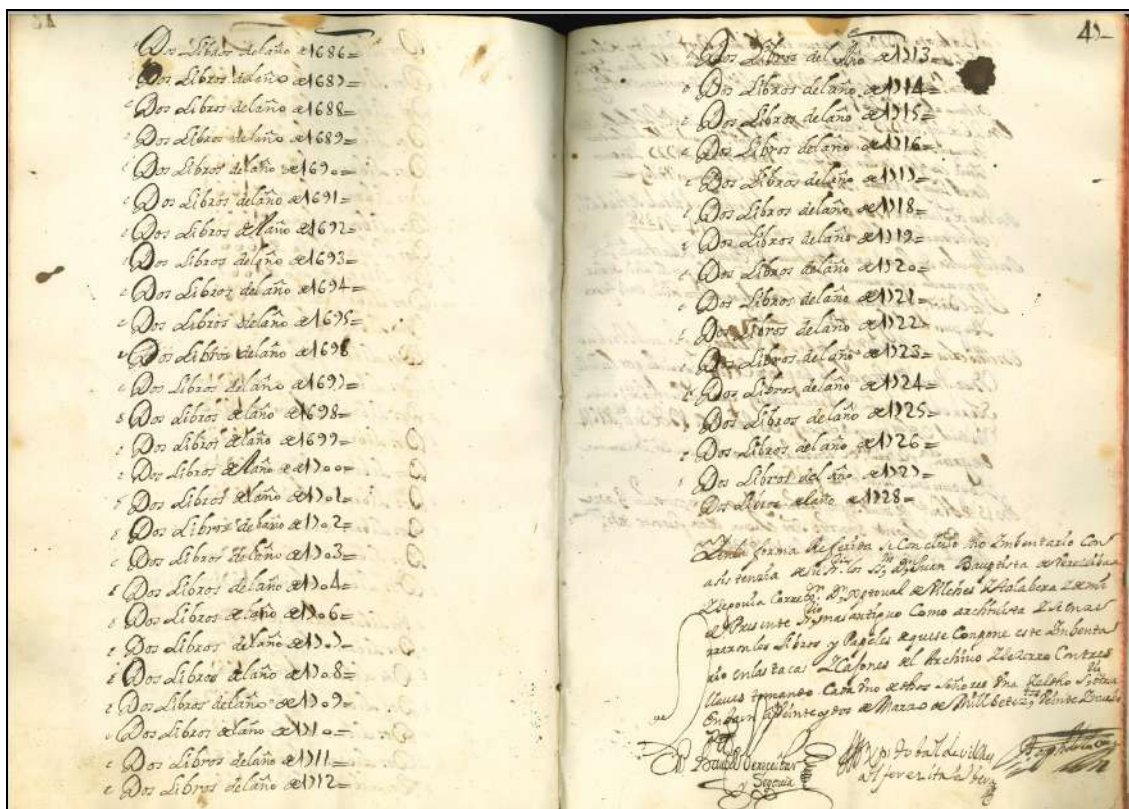 Dos Libros del año de 1686=
Dos Libros del año de 1687=
Dos Libros del año de 1688=
Dos Libros del año de 1689=
Dos Libros del año de 1690=
Dos Libros del año de 1691=
Dos Libros del año de 1692=
Dos Libros del año de 1693=
Dos Libros del año de 1694=
Dos Libros del año de 1695=
Dos Libros del año de 1696
Dos Libros del año de 1697=
Dos Libros del año de 1698=
Dos Libros del año de 1699=
Dos Libros del año de 1700=
Dos Libros del año de 1701=
Dos Libros del año de 1702=
Dos Libros del año de 1703=
Dos Libros del año de 1704=
Dos Libros del año de 1706=
Dos Libros del año de 1707=
Dos Libros del año de 1708=
Dos Libros del año de 1709=
Dos Libros del año de 1710=
Dos Libros del año de 1711=
Dos Libros del año de 1712=
Dos Libros del Año de 1713=
Dos Libros del año de 1714=
Dos Libros del año de 1715=
Dos Libros del año de 1716=
Dos Libros del año de 1717=
Dos Libros del año de 1718=
Dos Libros del año de 1719=
Dos Libros del año de 1720=
Dos Libros del año de 1721=
Dos Libros del año de 1722=
Dos Libros del año de 1723=
Dos Libros del año de 1724=
Dos Libros del año de 1725=
Dos Libros del año de 1726=
Dos Libros del año de 1727=
Dos Libros del año de 1728=
En la forma Referida se Concluio dho Inbentario Con
asistencia de los Juan Bauptista de
Correxor de Vilches
Presente mas antiguo Como archivista
los Libros y Papeles que se Conpone este Inbenta
rio en las tacas Y Caxones del Archivo Con tres
llaves tomando Cada Uno de dhos Señores Una
en Jaen a Veinte y dos de Marzo de Mill Veinte